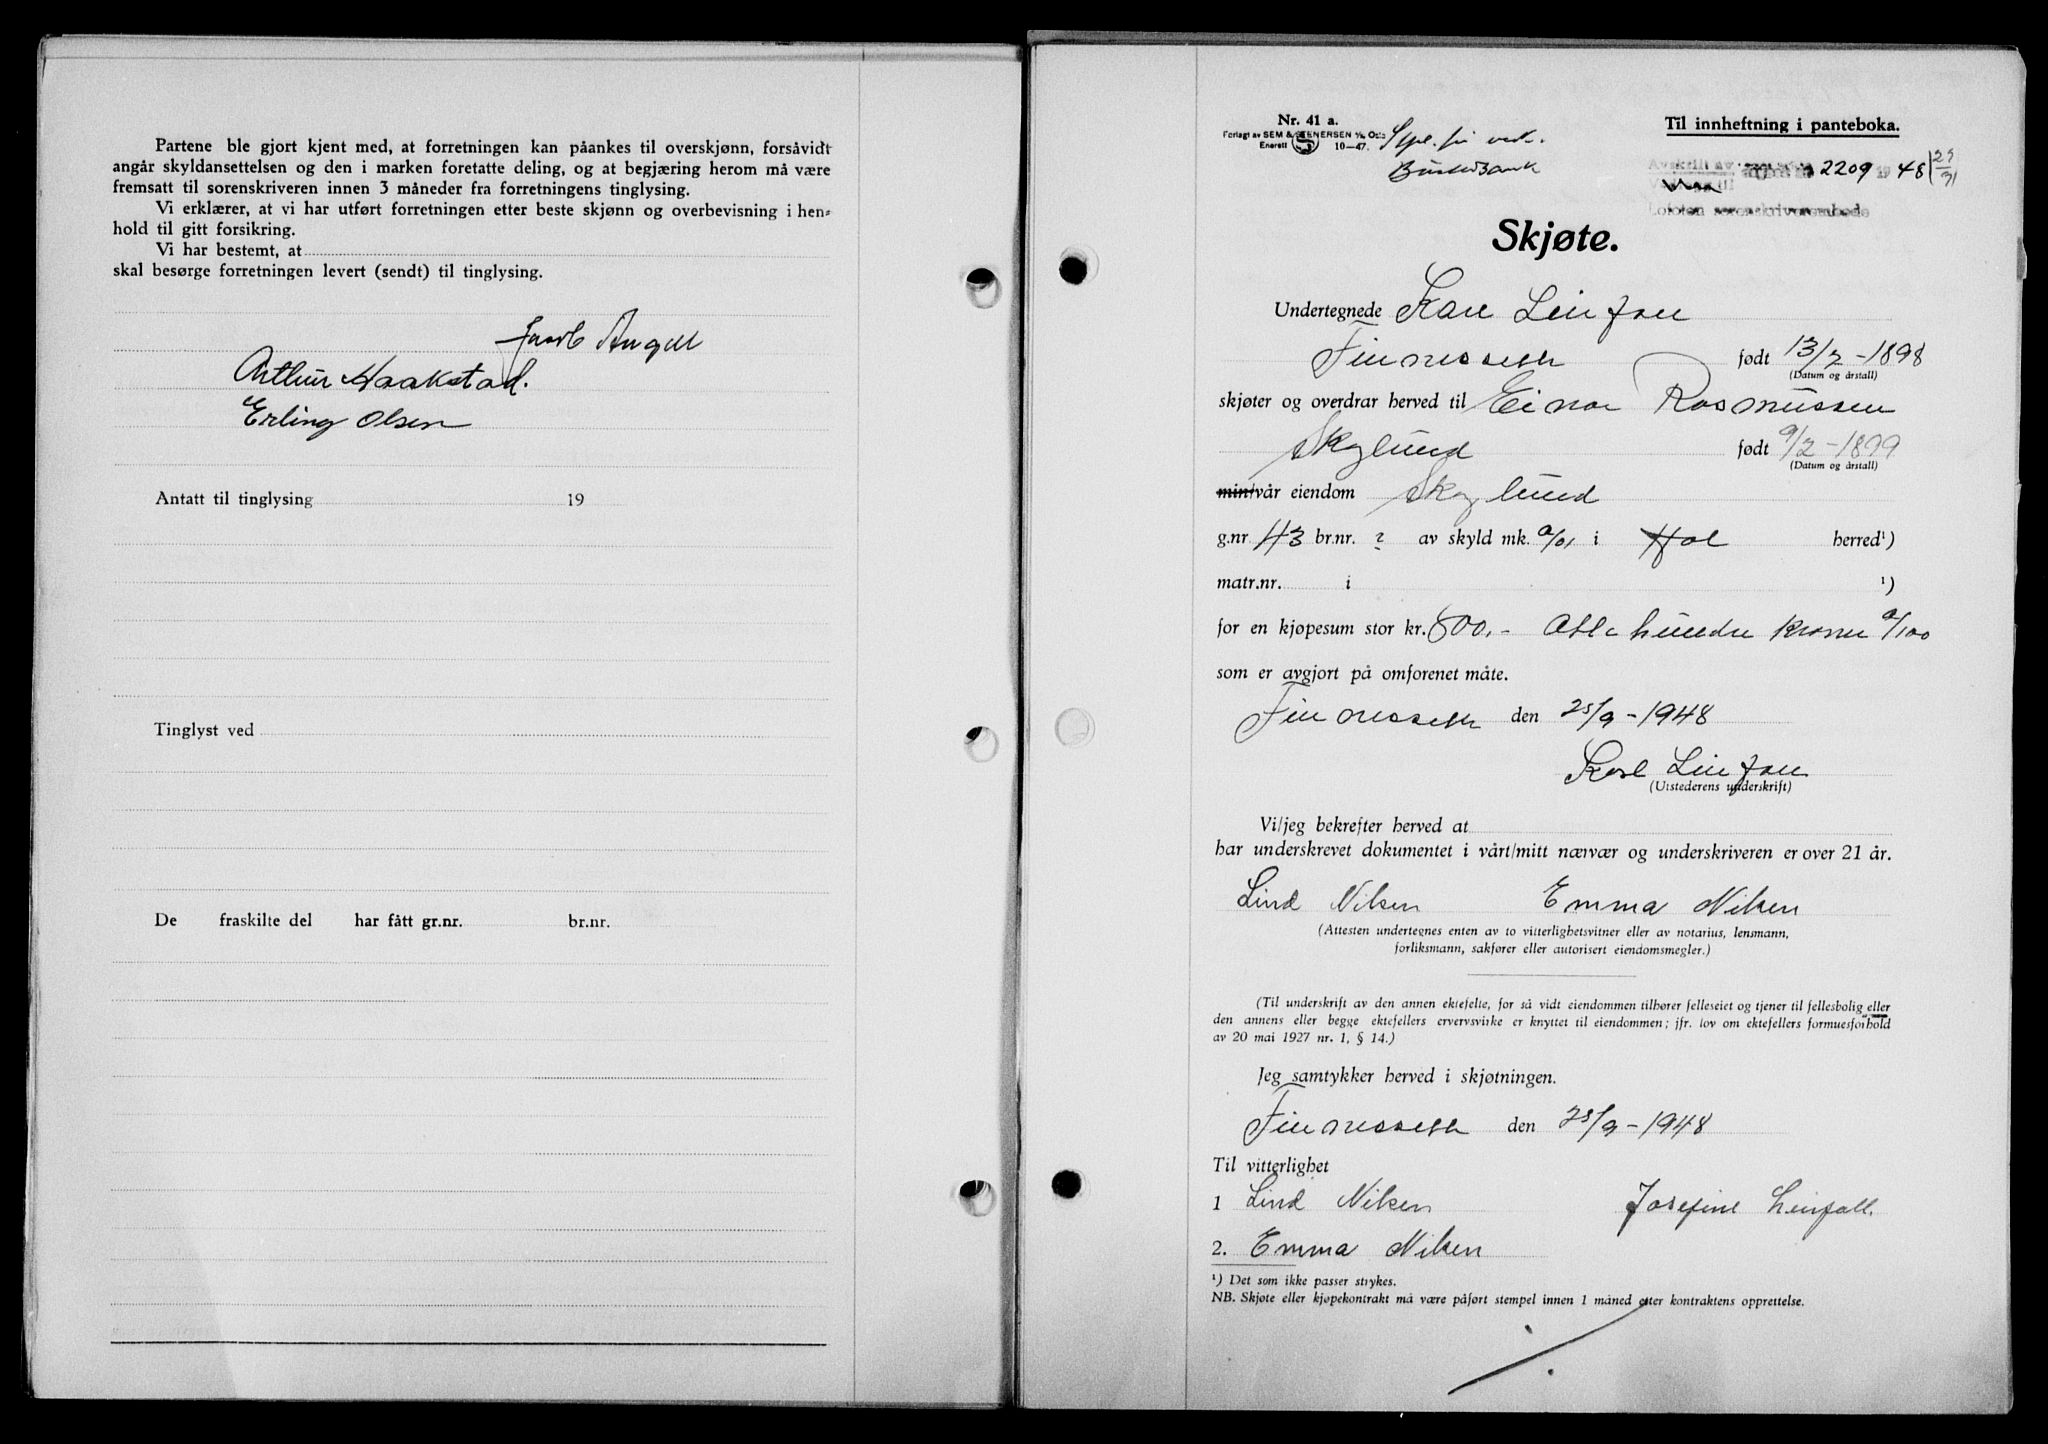 Partene ble gjort kjent med, at forretningen kan påankes til overskjønn, forsåvidt
angår skyldansettelsen og den i marken foretatte deling, og at begjæring herom må være
fremsatt til sorenskriveren innen 3 måneder fra forretningens tinglysing.
Vi erklærer, at vi har utført forretningen etter beste skjønn og overbevisning i hen-
hold til gitt forsikring.
Vi har bestemt, at
skal besørge forretningen levert (sendt) til tinglysing.
Jacob Angell
Arthur Haakstad.
Erling Olsen
Antatt til tinglysing 19
Tinglyst ved
De fraskilte del har fått gr.nr. br.nr.
Nr. 41 a.
Forlagt av SEM & STENERSEN A/S, Oslo
Enerett 10-47.
Til innheftning i panteboka.
Avskrift av 2209 1948 29/9
Lofoten sorenskriverembede
Skjøte.
Undertegnede Karl Leinfall
Finnesseth født 13/2-1898
skjøter og overdrar herved til Einar Rasmussen
Skoglund født 9/2-1899
min/vår eiendom Skoglund
g.nr. 43 br.nr. ? av skyld mk. 0/01 i Hol herred¹)
matr.nr. i ¹)
for en kjøpesum stor kr. 800.- Otte hundre kroner 0/100
som er avgjort på omforenet måte.
Finnesseth den 25/9-1948
Karl Leinfall
(Utstederens underskrift)
Vi/jeg bekrefter herved at
har underskrevet dokumentet i vårt/mitt nærvær og underskriveren er over 21 år.
Lind Nilsen Emma Nilsen
(Attesten undertegnes enten av to vitterlighetsvitner eller av notarius, lensmann,
forliksmann, sakfører eller autorisert eiendomsmegler.)
(Til underskrift av den annen ektefelle, for så vidt eiendommen tilhører felleseiet og tjener til fellesbolig eller
den annens eller begge ektefellers ervervsvirke er knyttet til eiendommen; jfr. lov om ektefellers formuesforhold
av 20 mai 1927 nr. 1, § 14.)
Jeg samtykker herved i skjøtningen.
Finnesseth den 25/9-1948
Til vitterlighet
1 Lind Nilsen Josefine Leinfall.
2. Emma Nilsen
¹) Det som ikke passer strykes.
NB. Skjøte eller kjøpekontrakt må være påført stempel innen 1 måned etter kontraktens opprettelse.